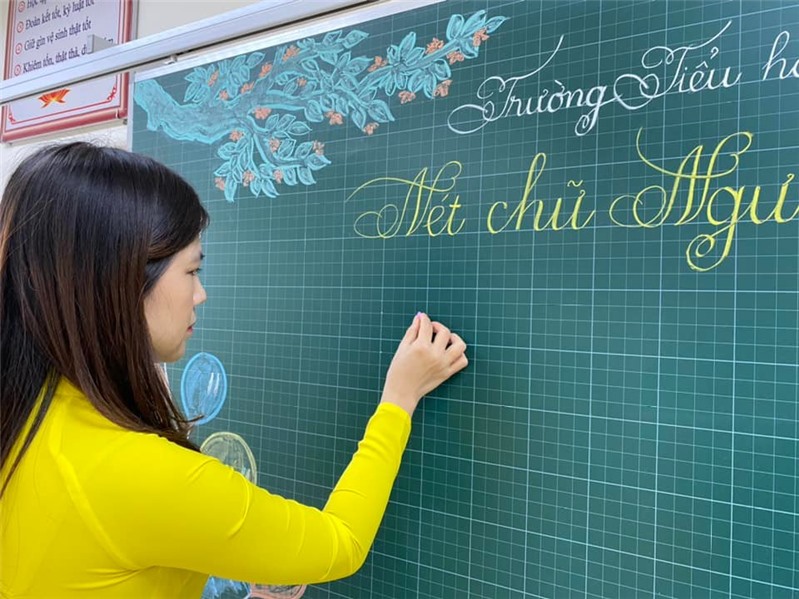 Học tập tốt
Đoàn kết tốt, kỷ luật tốt
Giữ gìn vệ sinh thật tốt
Khiêm tốn, thật thà, dũng
Trường Tiểu họ
Nét chữ Ngườ